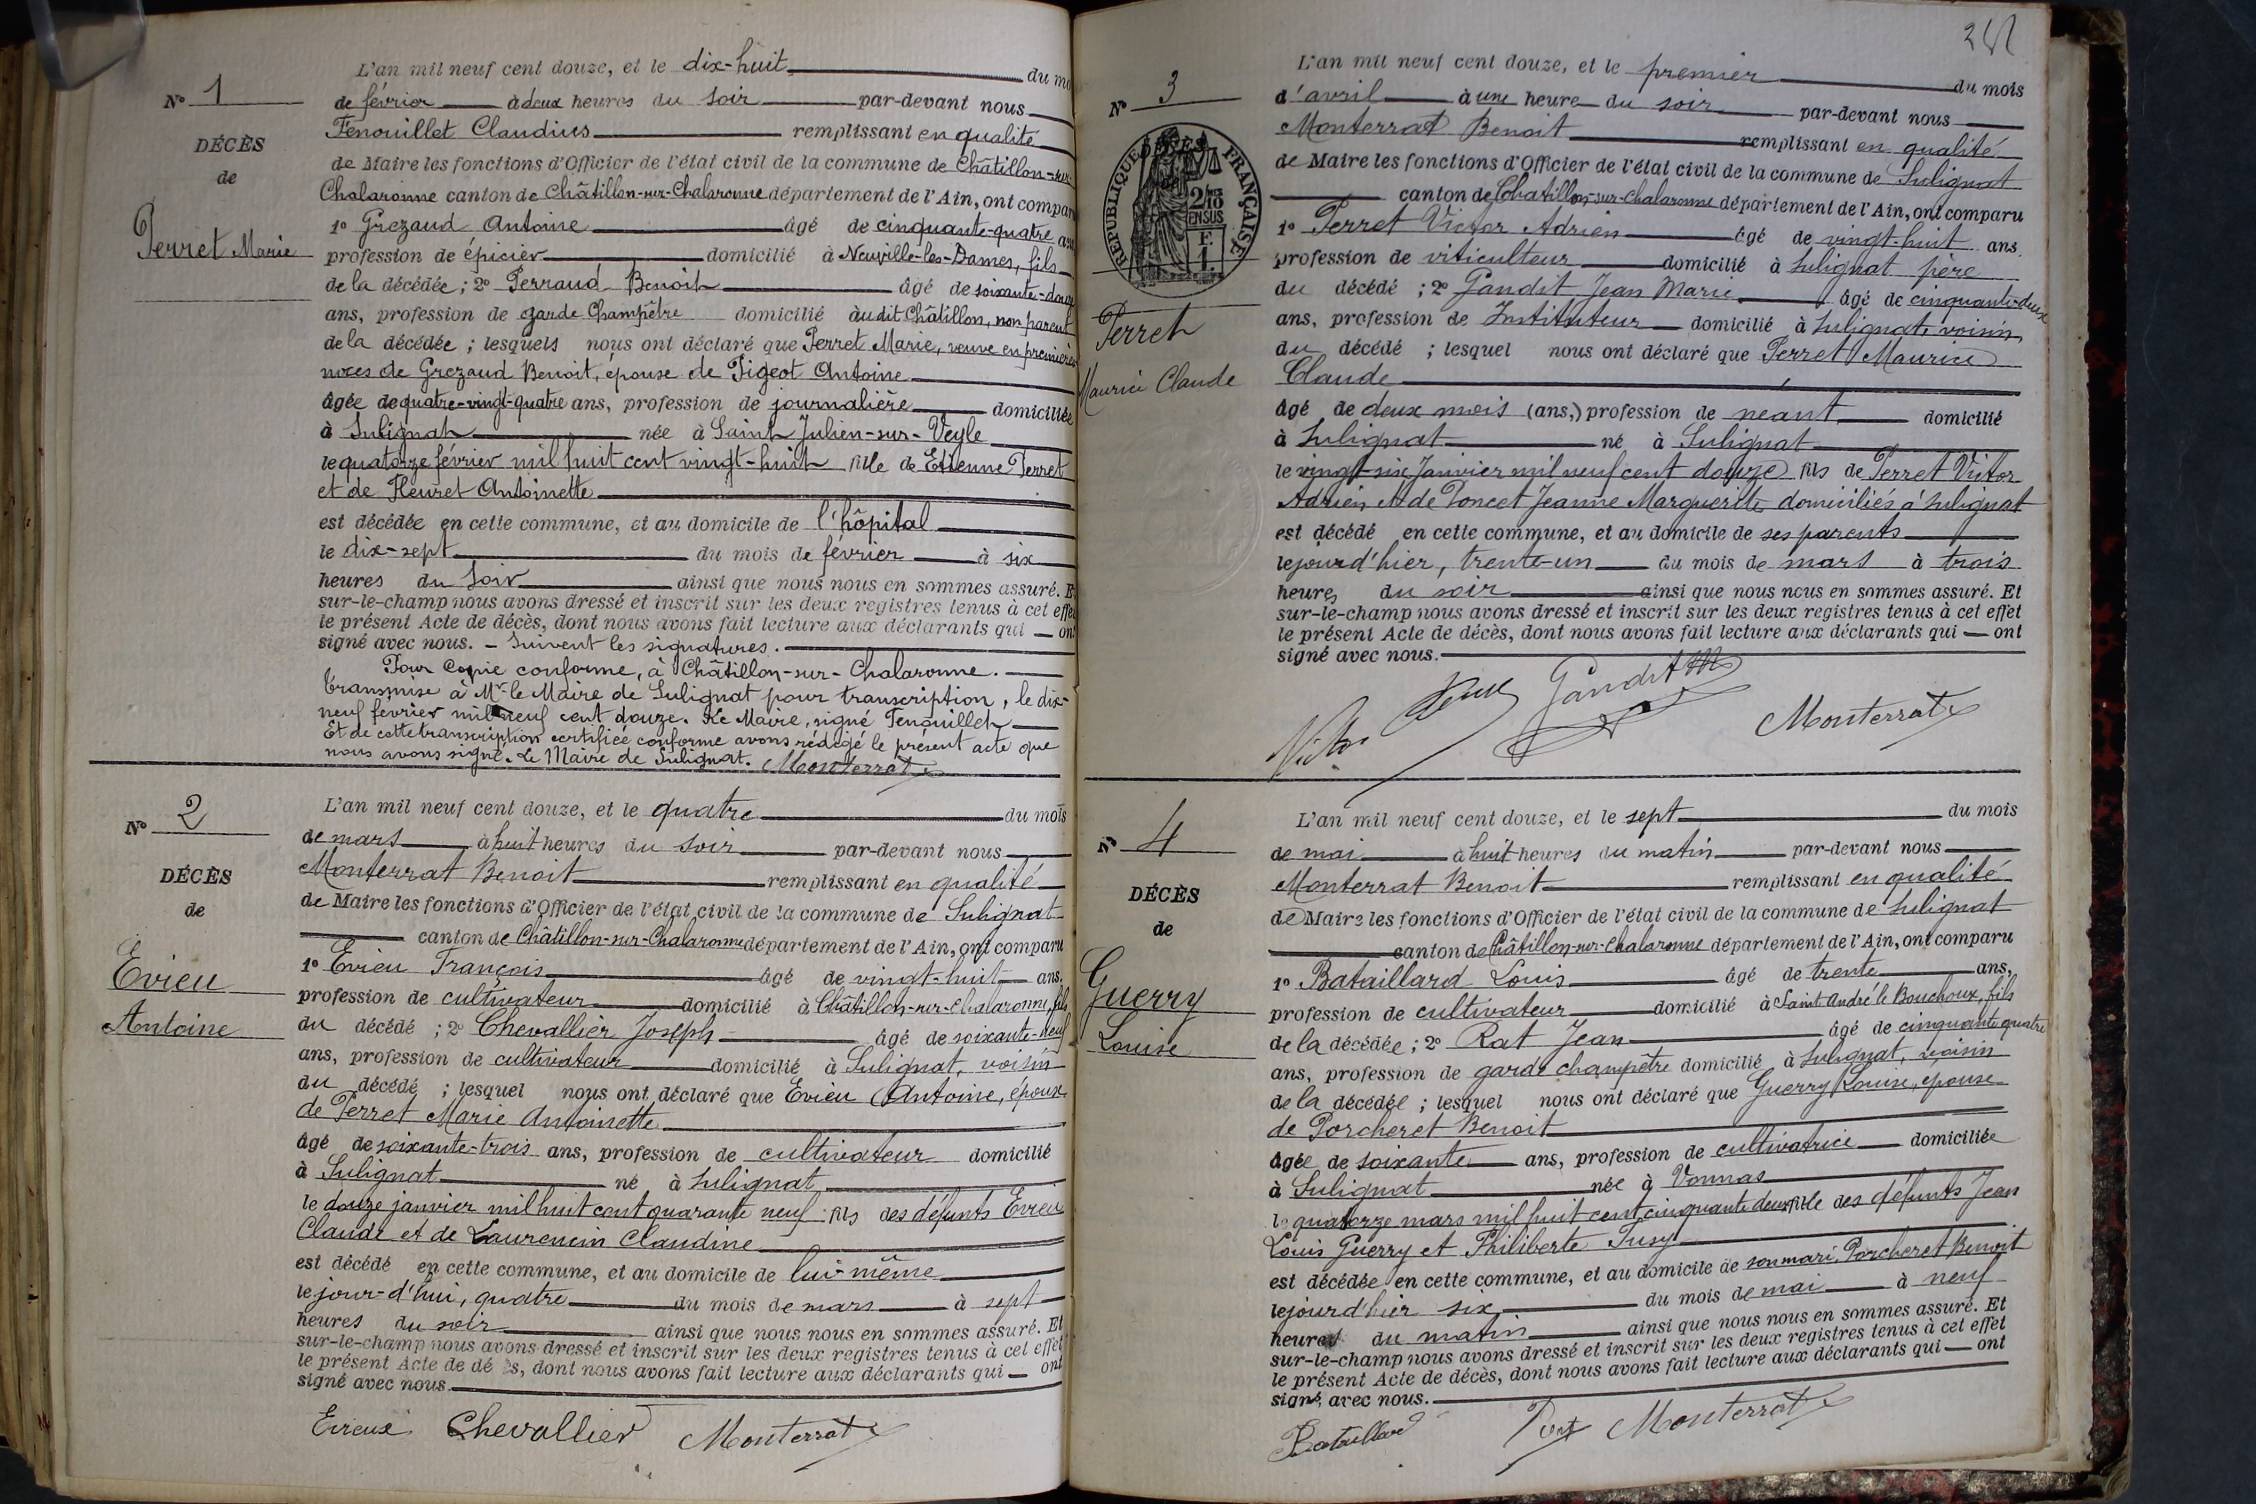 L'an mil neuf cent douze, et le dix-huit du mo
N° 1
de février à deux heures du soir par-devant nous
Fenouillet Claudius remplissant en qualité
DÉCÈS
de Maire les fonctions d'Officier de l'état civil de la commune de Châtillon-sur-
de
Chalaronne canton de Châtillon-sur-Chalaronne département de l'Ain, ont compar
Perret Marie
1° Grezaud Antoine âgé de cinquante-quatre ans
profession de épicier domicilié à Neuville-les-Dames, fils
de la décédée ; 2° Perraud Benoit âgé de soixante-douze
ans, profession de garde champêtre domicilié audit Châtillon, non parent
de la décédée ; lesquels nous ont déclaré que Perret Marie, veuve en premières
noces de Grezaud Benoit, épouse de Pigeot Antoine
âgée de quatre-vingt-quatre ans, profession de journalière domiciliée
à Sulignat née à Saint Julien-sur-Veyle
le quatorze février mil huit cent vingt-huit fille de Etienne Perret
et de Fleuret Antoinette
est décédée en cette commune, et au domicile de l'hôpital
le dix-sept du mois de février à six
heures du soir ainsi que nous nous en sommes assuré. Et
sur-le-champ nous avons dressé et inscrit sur les deux registres tenus à cet effet
le présent Acte de décès, dont nous avons fait lecture aux déclarants qui ont
signé avec nous. - Suivent les signatures.
Pour Copie conforme, à Châtillon-sur-Chalaronne.
Transmise à Mr le Maire de Sulignat pour transcription, le dix-
neuf février mil neuf cent douze. Le Maire, signé Fenouillet
Et de cette transcription certifiée conforme avons rédigé le présent acte que
nous avons signé. Le Maire de Sulignat. Monterrat
N° 2
L'an mil neuf cent douze, et le quatre du mois
de mars à huit heures du soir par-devant nous
Monterrat Benoit remplissant en qualité
DÉCÈS
de Maire les fonctions d'Officier de l'état civil de la commune de Sulignat
de
canton de Châtillon-sur-Chalaronne département de l'Ain, ont comparu
Evieu
Antoine
1° Evieu François âgé de vingt-huit ans.
profession de cultivateur domicilié à Châtillon-sur-Chalaronne, fils
du décédé ; 2° Chevallier Joseph âgé de soixante-neuf
ans, profession de cultivateur domicilié à Sulignat, voisin
du décédé ; lesquel nous ont déclaré que Evieu Antoine, époux
de Perret Marie Antoinette
âgé de soixante-trois ans, profession de cultivateur domicilié
à Sulignat né à Sulignat
le douze janvier mil huit cent quarante neuf fils des défunts Evieu
Claude et de Laurencin Claudine
est décédé en cette commune, et au domicile de lui-même
le jour-d'hui, quatre du mois de mars à sept
heures du soir ainsi que nous nous en sommes assuré. Et
sur-le-champ nous avons dressé et inscrit sur les deux registres tenus à cet effet
le présent Acte de dé s, dont nous avons fait lecture aux déclarants qui ont
signé avec nous
Evieux Chevallier Monterrat
L'an mil neuf cent douze, et le premier du mois
N° 3
d'avril à une heure du soir par-devant nous
Monterrat Benoit remplissant en qualité
de Maire les fonctions d'Officier de l'état civil de la commune de Sulignat
canton de Chatillon-sur-Chalaronne département de l'Ain, ont comparu
RÉPUBLIQUE FRANÇAISE
2/10
EN SUS
F.
1.
Perret
Maurice Claude
1° Perret Victor Adrien âgé de vingt-huit ans.
profession de viticulteur domicilié à Sulignat père
du décédé ; 2° Gandit Jean Marie âgé de cinquante-deux
ans, profession de Instituteur domicilié à Sulignat voisin
du décédé ; lesquel nous ont déclaré que Perret Maurice
Claude
âgé de deux mois (ans,) profession de néant domicilié
à Sulignat né à Sulignat
le vingt-six Janvier mil neuf cent douze fils de Perret Victor
Adrien et de Poncet Jeanne Marguerite domiciliés à Sulignat
est décédé en cette commune, et au domicile de ses parents
le jour d'hier, trente-un du mois de mars à trois
heures du soir ainsi que nous nous en sommes assuré. Et
sur-le-champ nous avons dressé et inscrit sur les deux registres tenus à cet effet
le présent Acte de décès, dont nous avons fait lecture aux déclarants qui ont
signé avec nous.
Victor Perret Gandit JM Monterrat
N° 4
L'an mil neuf cent douze, et le sept du mois
de mai à huit heures du matin par-devant nous
Monterrat Benoit remplissant en qualité
DÉCÈS
de Maire les fonctions d'Officier de l'état civil de la commune de Sulignat
de
canton de Châtillon-sur-Chalaronne département de l'Ain, ont comparu
Guerry
Louise
1° Bataillard Louis âgé de trente ans,
profession de cultivateur domicilié à Saint André le Bouchoux, fils
de la décédée ; 2° Rat Jean âgé de cinquante quatre
ans, profession de garde champêtre domicilié à Sulignat, voisin
de la décédée ; lesquel nous ont déclaré que Guerry Louise, épouse
de Porcheret Benoit
âgée de soixante ans, profession de cultivatrice domiciliée
à Sulignat née à Vonnas
le quatorze mars mil huit cent cinquante deux fille des défunts Jean
Louis Guerry et Philiberte Tusy
est décédée en cette commune, et au domicile de son mari, Porcheret Benoit
le jour d'hier six du mois de mai à neuf
heures du matin ainsi que nous nous en sommes assuré. Et
sur-le-champ nous avons dressé et inscrit sur les deux registres tenus à cet effet
le présent Acte de décès, dont nous avons fait lecture aux déclarants qui ont
signé avec nous.
Bataillard Monterrat